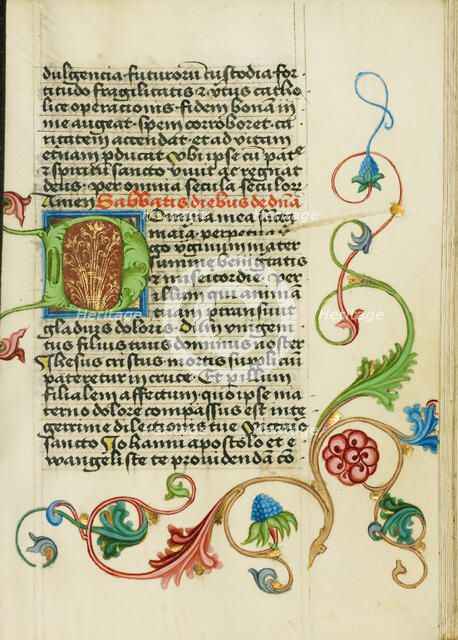 dulgencia · futuroru custodia for
titudo fragilitatis & vtus catho
lice operationis · fidem bonam in
me augeat · spem corroboret · ca
ritatem accendat · et ad vitam
eternam pducat · vbi ipse cu patre
& spiritu sancto viuit ac regnat
deus · per omnia secula seculoru
Amen Sabbatis diebus de dna
Domina mea sacra
maria perpetu
go vginum mater
summe benignitatis
& misericordie · per
illum qui animam
tuam ptransiuit
gladius doloris · dum vnigen
tus filius tuus dominus noster
Ihesus cristus mortis suppliciu
pateretur in cruce · Et p illum
filialem affectum · quo ipse ma
terno dolore compassus est inte
gerrime dilectionis tue victario
sancto Iohanni apostolo et e
wangeliste te prouidendam co
heritage
Images